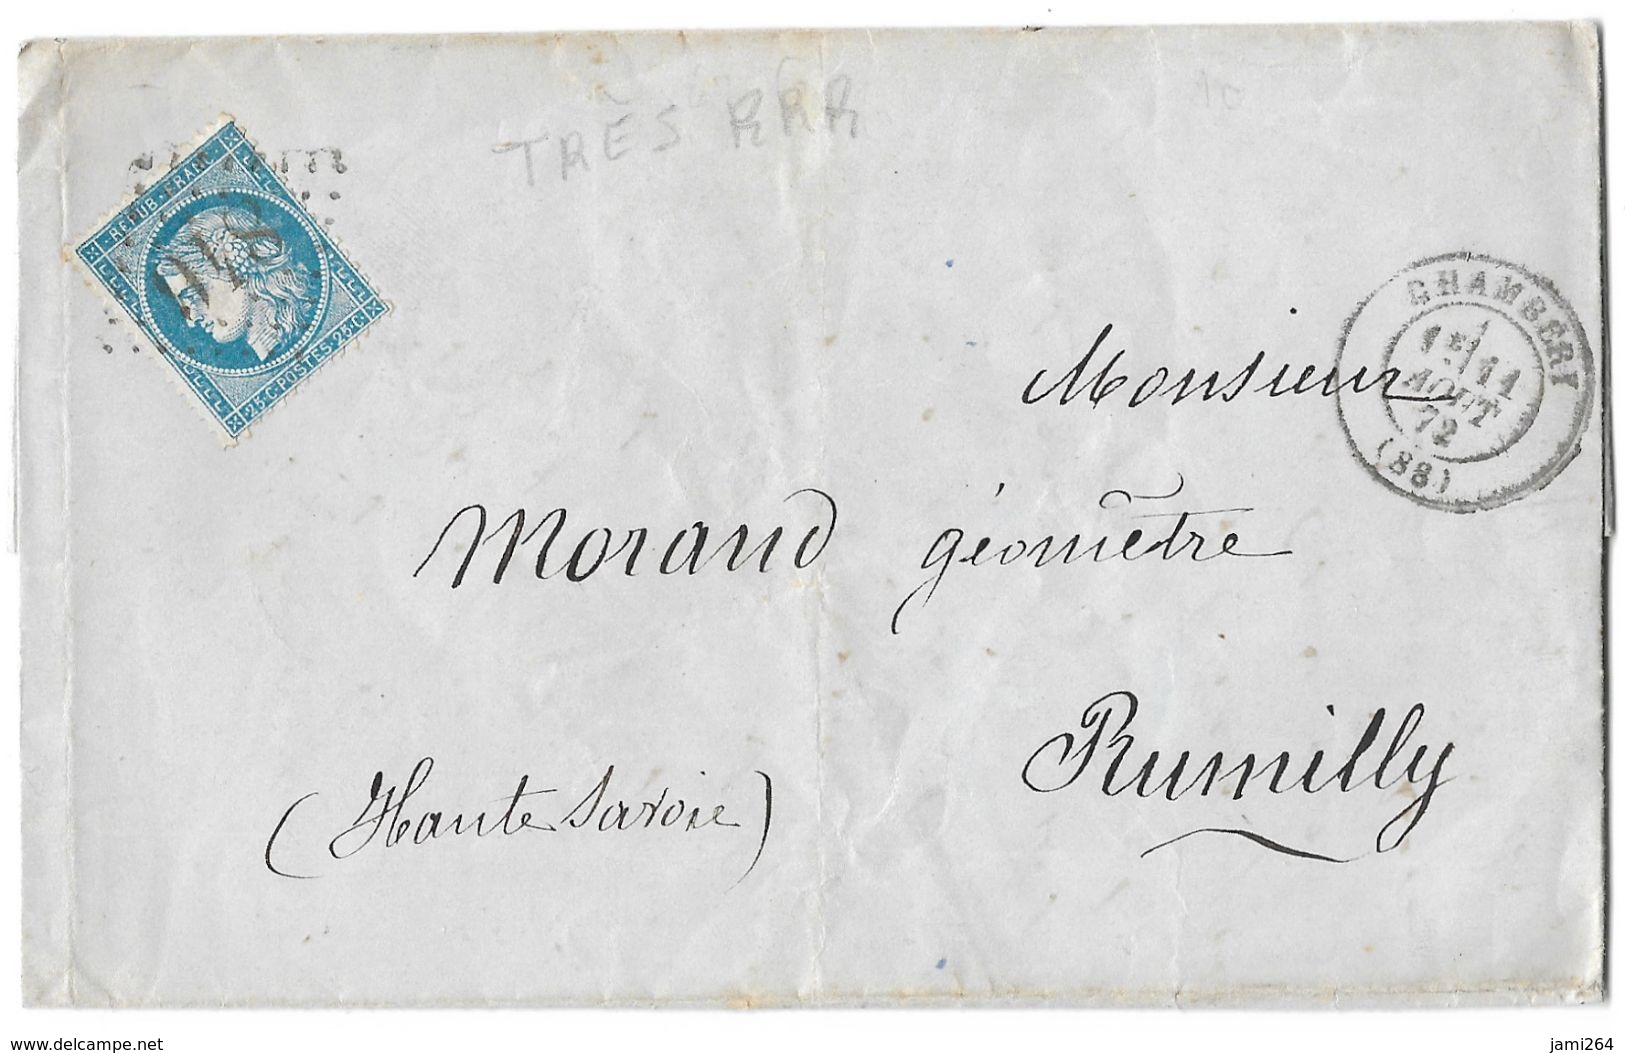 TRÈS RRR
10
REPUB. FRANC.
25·C·POSTES·25·C·
CHAMBÉRY
11
AOUT
72
(88)
Monsieur
Morand géomètre
Rumilly
(Haute Savoie)
www.delcampe.net
jami264